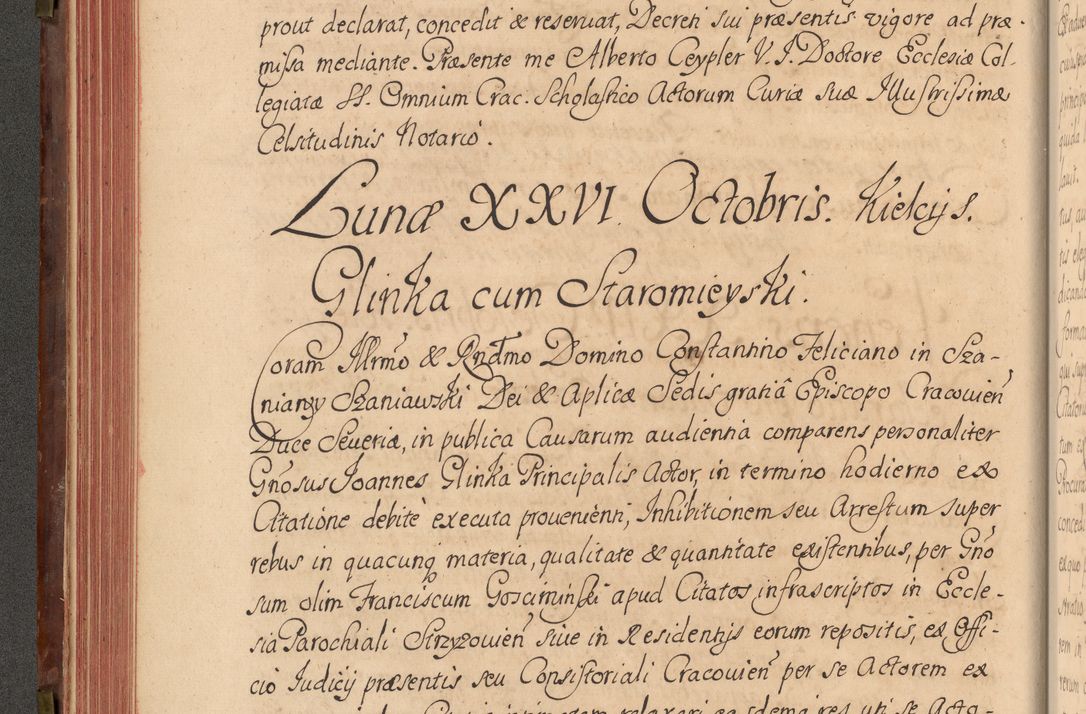 prout declarat, concedit & reseruat, Decreti sui præsentis vigore ad præ-
missa mediante. Præsente me Alberto Ceypler V. J. Doctore Ecclesiæ Col-
legiatæ SS. Omnium Crac. Scholastico Actorum Curiæ suæ Illustrissimæ
Celsitudinis Notario.
Lunæ XXVI. Octobris. Kielcijs.
Glinka cum Staromieyski.
Coram Illrmo & Rndmo Domino Constantino Feliciano in Sza-
niawy Szaniawski Dei & Aplicæ Sedis gratiâ Episcopo Cracouien
Duce Seueriæ, in publica Causarum audientia comparens personaliter
Gnosus Joannes Glinka Principalis Actor, in termino hodierno ex
Citatione debitè executa prouenienti, Inhibitionem seu Arrestum super
rebus in quacunq materia, qualitate & quantitate existentibus, per Gno
sum olim Franciscum Gosciminski apud Citatos infrascriptos in Eccle-
sia Parochiali Strzyzouien siue in Residentijs eorum repositis, ex Offi-
cio Iudicij præsentis seu Consistoriali Cracouien per se Actorem ex
relaxari ea sdema res uti se Acto-